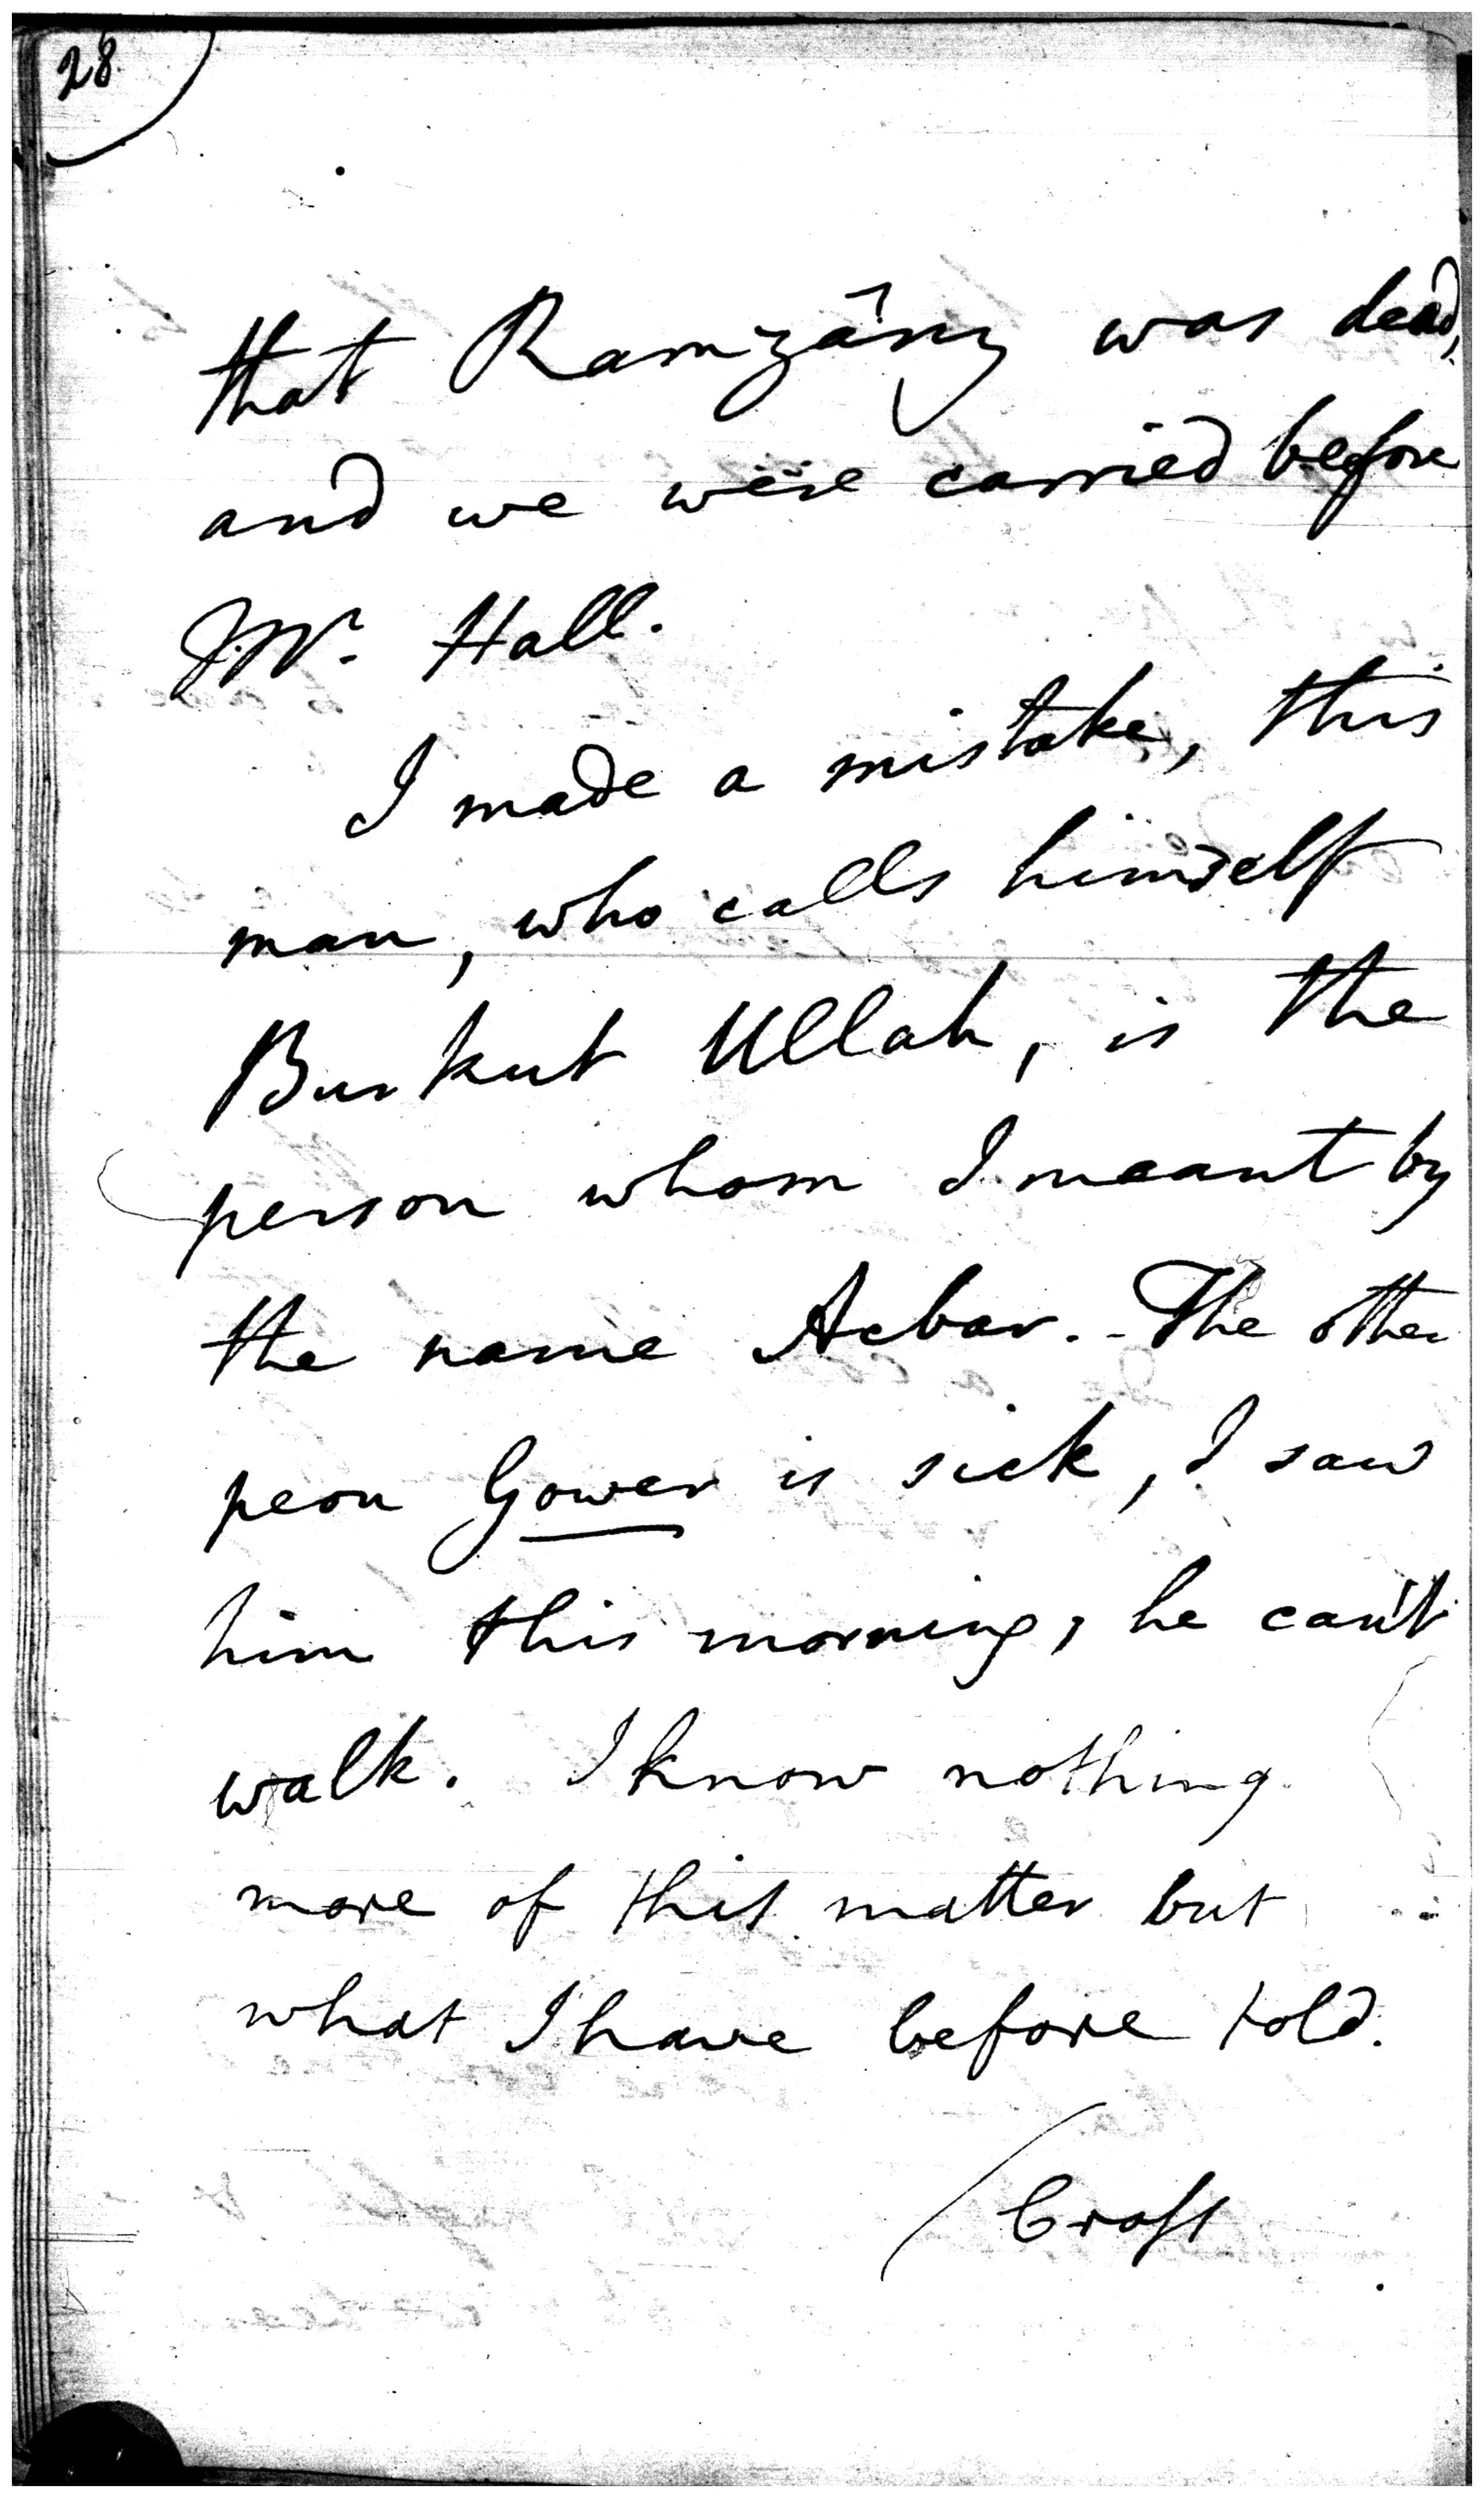 28
that Ramzâny was dead,
and we were carried before
Mr. Hall.
I made a mistake, this
man, who calls himself
Burkut Ullah, is the
person whom I meant by
the name Acbar. - The other
peon Gower is sick, I saw
him this morning, he can't
walk. I know nothing
more of this matter but
what I have before told.
Croft